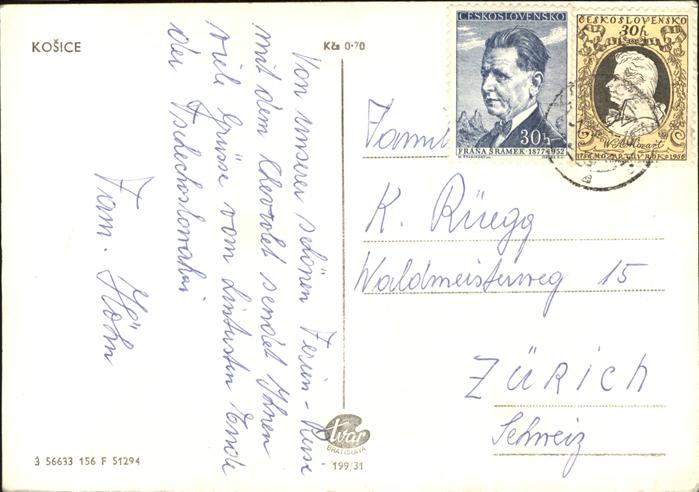 KOŠICE
Kčs 0·70
Von unserer schönen Ferien-Reise
mit dem Chevrolet sendet Ihnen
viele Grüsse vom hintersten Ende
der Tschechoslowakei
Fam. Höhn
ČESKOSLOVENSKO
30h
FRÁŇA ŠRÁMEK · 1877-1952
ČESKOSLOVENSKO
30h
W A Mozart
1756 MOZARTŮV ROK 1956
Famil
K. Rüegg
Waldmeisterweg 15
ZÜRICH
Schweiz
tvar
BRATISLAVA
199/31
3 56633 156 F 51294